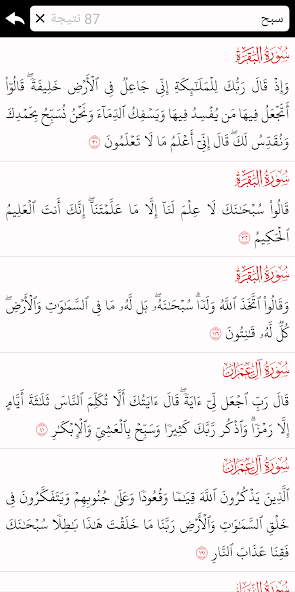 سبح
87 نتيجة
سُورَةُ الْبَقَرَةِ
وَإِذْ قَالَ رَبُّكَ لِلْمَلَـٰٓئِكَةِ إِنِّى جَاعِلٌ فِى ٱلْأَرْضِ خَلِيفَةً ۖ قَالُوٓا۟
أَتَجْعَلُ فِيهَا مَن يُفْسِدُ فِيهَا وَيَسْفِكُ ٱلدِّمَآءَ وَنَحْنُ نُسَبِّحُ بِحَمْدِكَ
وَنُقَدِّسُ لَكَ ۖ قَالَ إِنِّىٓ أَعْلَمُ مَا لَا تَعْلَمُونَ ٣٠
سُورَةُ الْبَقَرَةِ
قَالُوا۟ سُبْحَـٰنَكَ لَا عِلْمَ لَنَآ إِلَّا مَا عَلَّمْتَنَآ ۖ إِنَّكَ أَنتَ ٱلْعَلِيمُ
ٱلْحَكِيمُ ٣٢
سُورَةُ الْبَقَرَةِ
وَقَالُوا۟ ٱتَّخَذَ ٱللَّهُ وَلَدًا ۗ سُبْحَـٰنَهُۥ ۖ بَل لَّهُۥ مَا فِى ٱلسَّمَـٰوَٰتِ وَٱلْأَرْضِ ۖ
كُلٌّ لَّهُۥ قَـٰنِتُونَ ١١٦
سُورَةُ آلِ عِمْرَانَ
قَالَ رَبِّ ٱجْعَل لِّىٓ ءَايَةً ۖ قَالَ ءَايَتُكَ أَلَّا تُكَلِّمَ ٱلنَّاسَ ثَلَـٰثَةَ أَيَّامٍ
إِلَّا رَمْزًا ۗ وَٱذْكُر رَّبَّكَ كَثِيرًا وَسَبِّحْ بِٱلْعَشِىِّ وَٱلْإِبْكَـٰرِ ٤١
سُورَةُ آلِ عِمْرَانَ
ٱلَّذِينَ يَذْكُرُونَ ٱللَّهَ قِيَـٰمًا وَقُعُودًا وَعَلَىٰ جُنُوبِهِمْ وَيَتَفَكَّرُونَ فِى
خَلْقِ ٱلسَّمَـٰوَٰتِ وَٱلْأَرْضِ رَبَّنَا مَا خَلَقْتَ هَـٰذَا بَـٰطِلًا سُبْحَـٰنَكَ
فَقِنَا عَذَابَ ٱلنَّارِ ١٩١